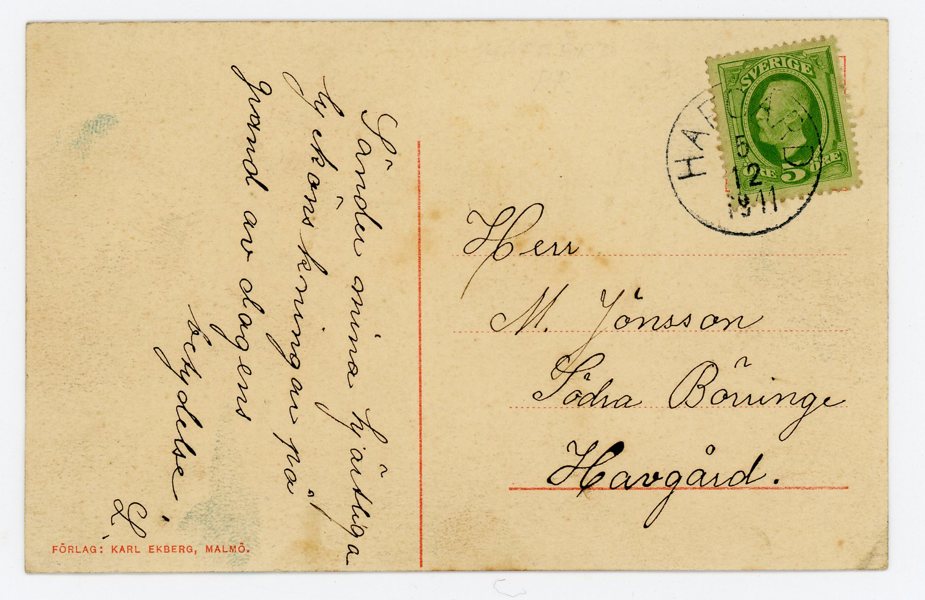 Sänder mina hjärtliga
lyckönskningar på
grand av dagens
betydelse
L
SVERIGE
5 ÖRE
HAVGÅRD
5
12
1911
Herr
M. Jönsson
Södra Börringe
Havgård.
FÖRLAG: KARL EKBERG, MALMÖ.